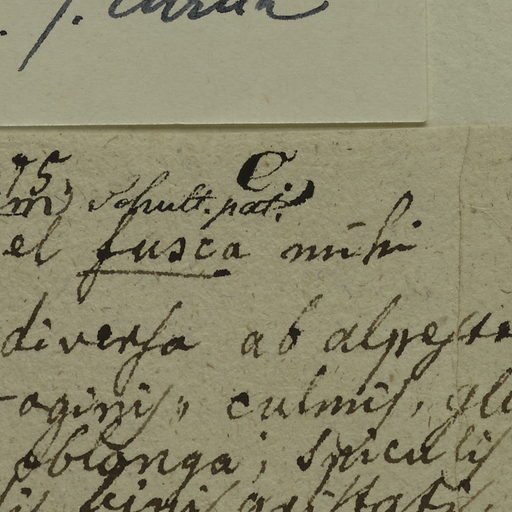 75. C.
m, Schult. pat.
el fusca mihi
diversa ab alpestr
oginis, culmis, glu
oblonga; spiculis